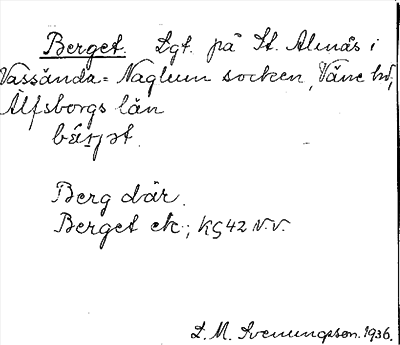 Berget. Lgt. på St. Almås i
Vassända=Naglum socken, Väne hd,
Älfsborgs län

Berg där.
Berget ek.; KG 42 N.V.
L. M. Svenungsson. 1936.